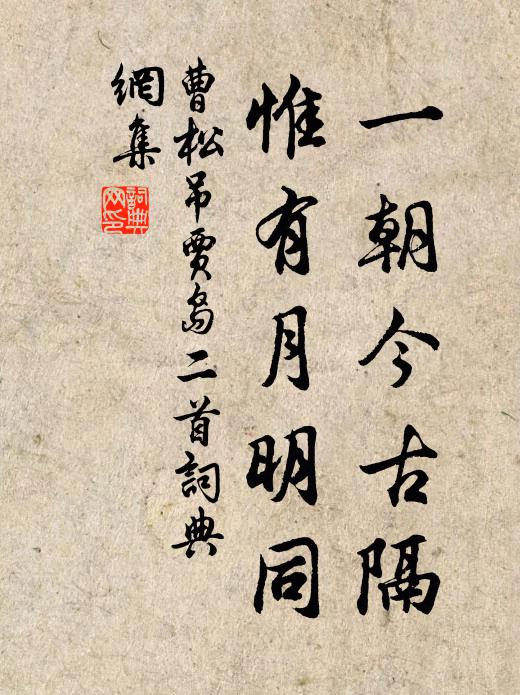 一朝今古隔
惟有月明同
曹松吊賈島二首詞典
網集
詞典
网印